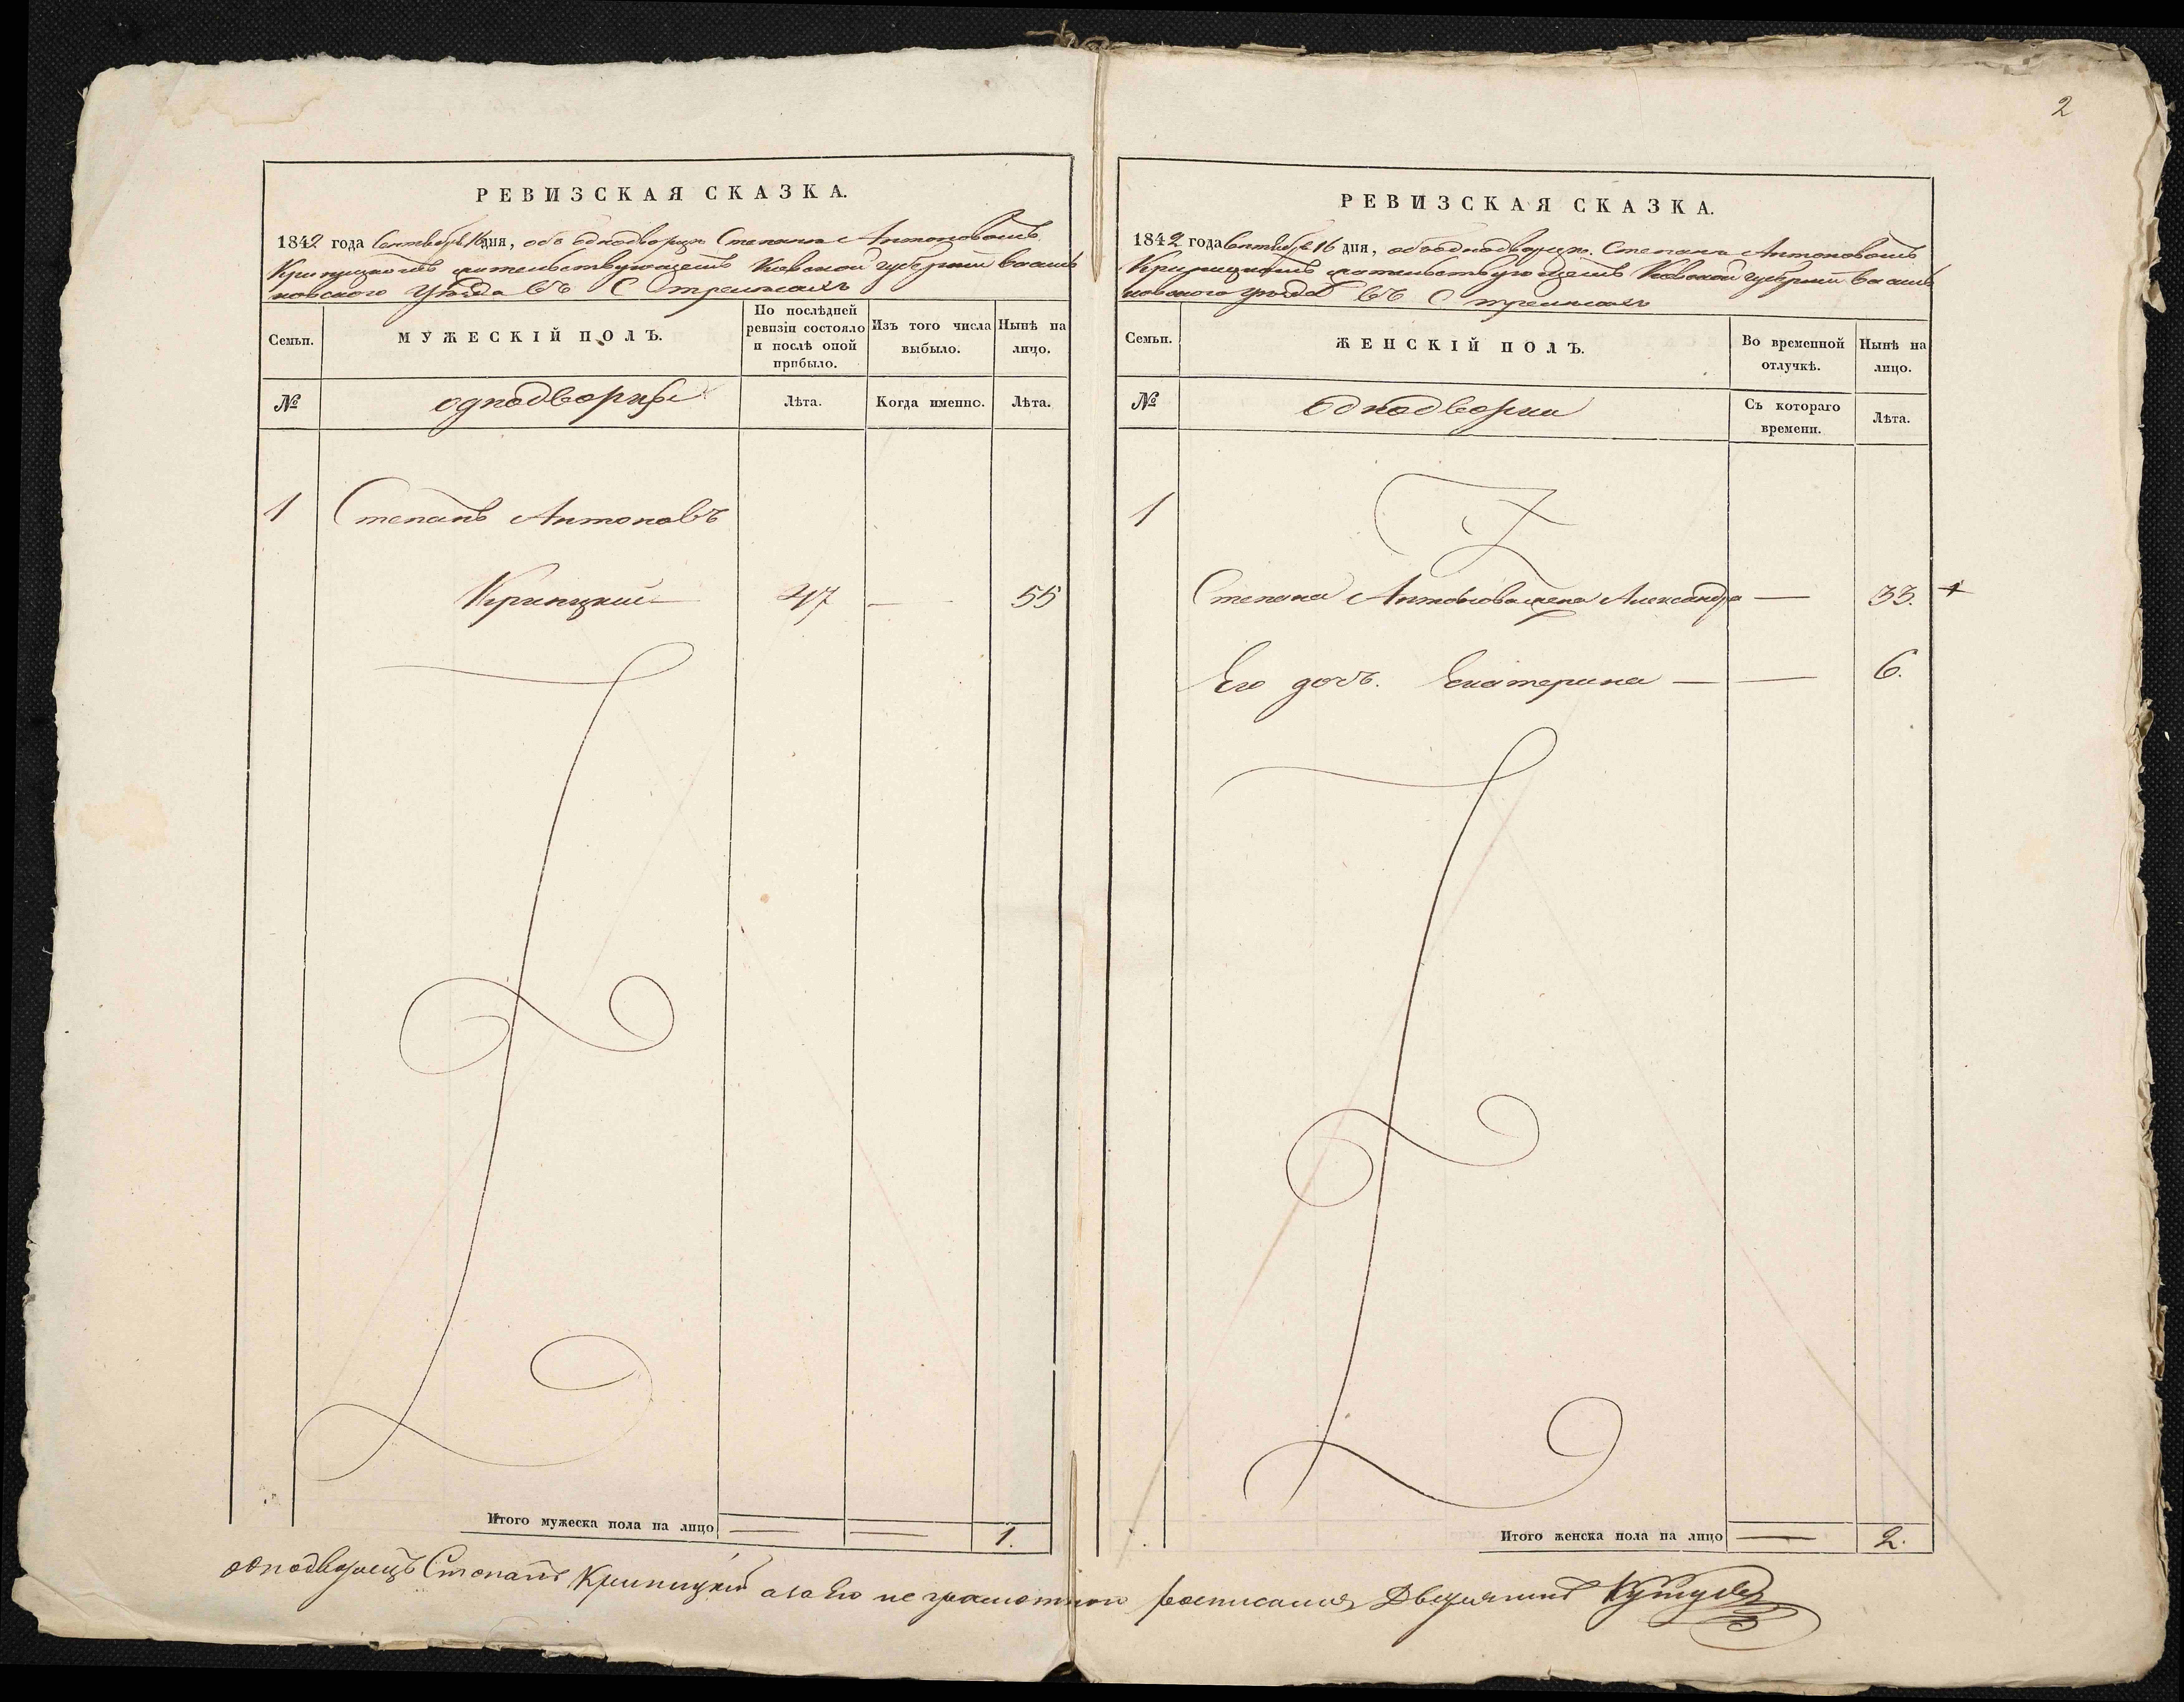 2
РЕВИЗСКАЯ СКАЗКА.
1842 года Сентября 16 дня, объ однодворцѣ Степанѣ Антоновомъ
Криницкомъ жительствующемъ Кіевской губерніи Василь
ковского Уѣзда въ С
Семьи.
МУЖЕСКІЙ ПОЛЪ.
По послѣдней ревизіи состояло и послѣ оной прибыло.
Изъ того числа выбыло.
Нынѣ на лицо.
№
однодворцы
Лѣта.
Когда именно.
Лѣта.
1 Степанъ Антоновъ
Криницкий — 47 — 55
Итого мужеска пола на лицо — — 1.
РЕВИЗСКАЯ СКАЗКА.
1842 года Сентября 16 дня, объ однодворцѣ Степанѣ Антоновомъ
Криницкомъ жительствующемъ Кіевской губерніи Василь
ковского уѣзда въ С
Семьи.
ЖЕНСКІЙ ПОЛЪ.
Во временной отлучкѣ.
Нынѣ на лицо.
№
однодворки
Съ котораго времени.
Лѣта.
1
Степана Антонова жена Александра — 33.
Его дочь Екатерина — — 6.
Итого женска пола на лицо — 2.
однодворецъ Степанъ Криницкій а за Его не грамотного росписался Дворянинъ